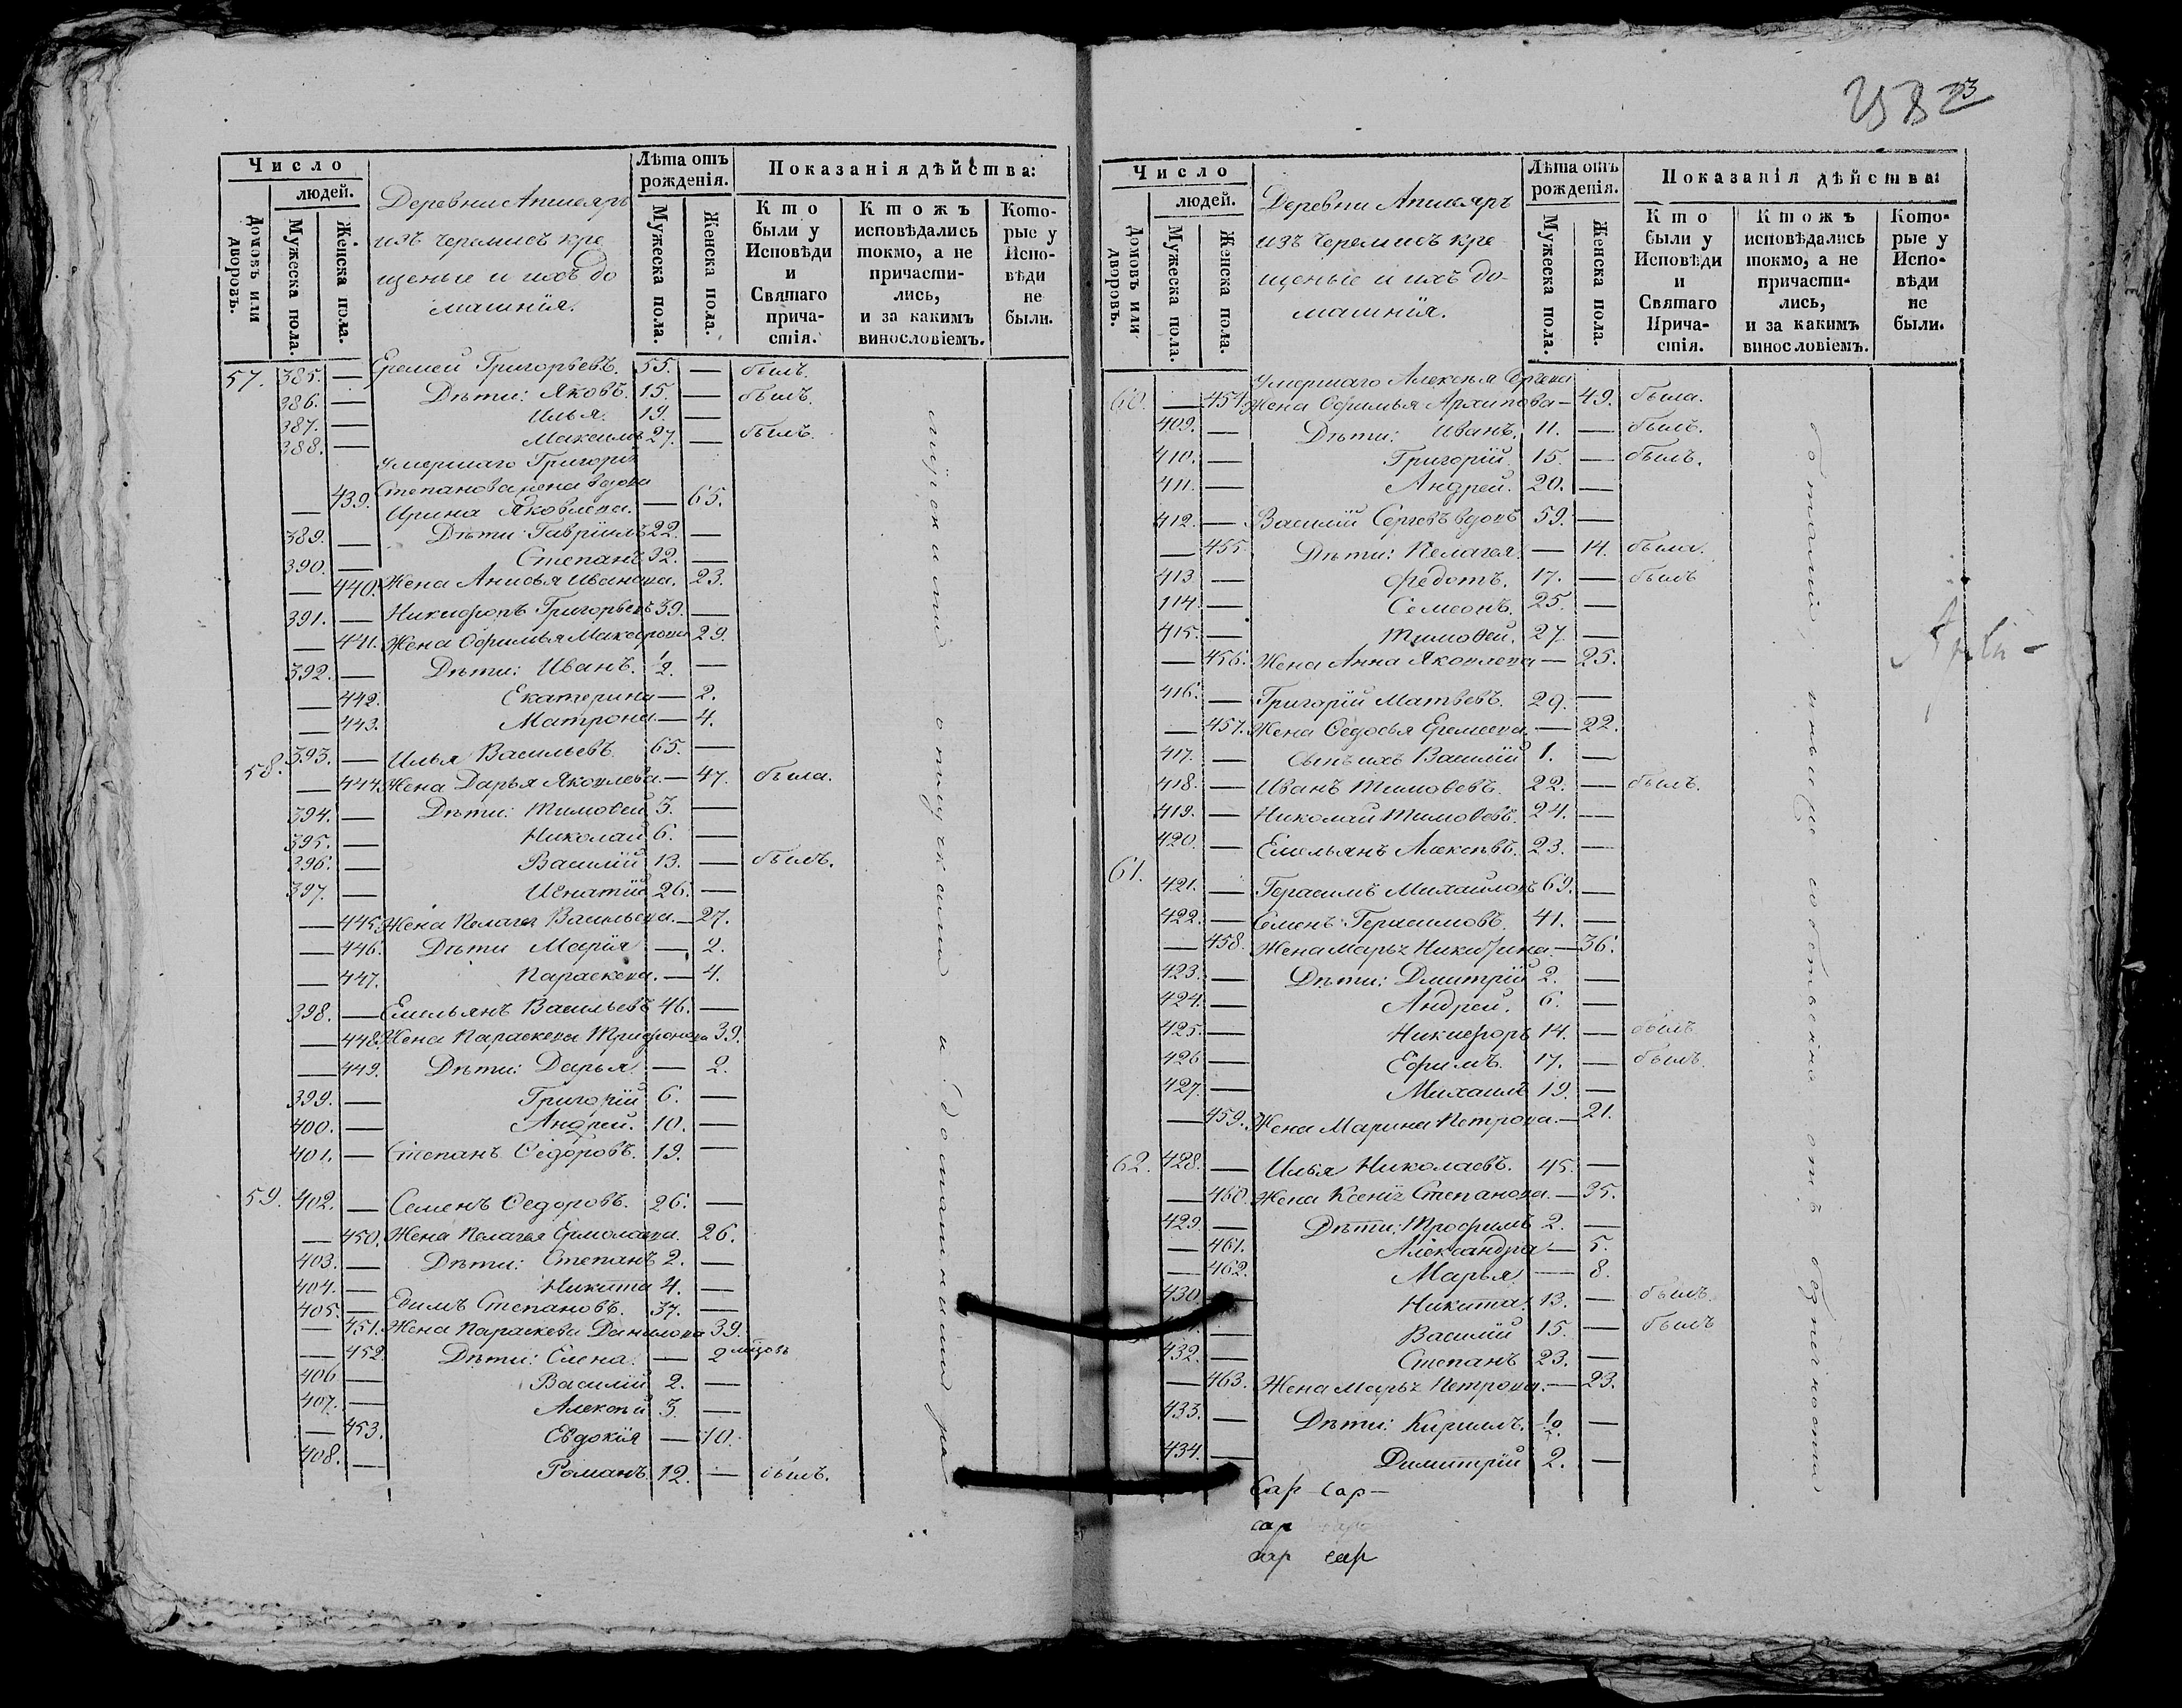 Число
людей.
домовъ или дворовъ.
Мужеска пола.
Женска пола.
Деревни Апшеяръ
изъ черемисъ кре
щеные и ихъ до
машнія.
Лѣта отъ
рожденія.
Мужеска пола.
Женска пола.
Показанія дѣйства:
Кто
были у
Исповѣди
и
Святаго
прича-
стія.
Ктожъ
исповѣдались
токмо, а не
причасти-
лись,
и за какимъ
винословіемъ.
Кото-
рые у
Испо-
вѣди
не
были.
57. 385. — Еремей Григорьевъ. 55. — былъ.
386. — Дѣти: Яковъ. 15. — былъ.
387. — Илья. 19. —
388. — Максимъ 27. — былъ.
Умершаго Григорія
Степанова жена вдова
— 439. Ирина Яковлева. — 65.
389. — Дѣти: Гавріилъ 22. —
390. — Степанъ 32. —
— 440. Жена Анисья Иванова. 23.
391. — Никифоръ Григорьевъ 39. —
— 441. Жена Офимья Макарова 29.
392. — Дѣти: Иванъ. 1/2. —
— 442. Екатерина — 2.
— 443. Матрона — 4.
58. 393. — Илья Васильевъ. 65. —
— 444. Жена Дарья Яковлева. — 47. была.
394. — Дѣти: Тимоѳей 3. —
395. — Николай 6. —
396. — Василій 13. — былъ.
397. — Игнатій 26. —
— 445. Жена Пелагея Васильева. — 27.
— 446. Дѣти Марія — 2.
— 447. Параскева. — 4.
398. — Емельянъ Васильевъ 46. —
— 448. Жена Параскева Трифонова 39.
— 449. Дѣти: Дарья. — 2.
399. — Григорій 6. —
400. — Андрей. 10. —
401. — Степанъ Ѳедоровъ. 19. —
59. 402. — Семенъ Ѳедоровъ. 26. —
— 450. Жена Пелагея Ермолаева. 26.
403. — Дѣти: Степанъ 2. —
404. — Никита 4. —
405. — Ефимъ Степановъ. 37. —
— 451. Жена Параскева Данилова 39.
— 452. Дѣти: Елена. — 2
406 — Василій 2. —
407. — Алексѣй 3. —
— 453. Евдокія — 10.
408. — Романъ. 12. — былъ.
отлучками и домашними ра
25823
Число
людей.
Домовъ или дворовъ.
Мужеска пола.
Женска пола.
Деревни Апшеяръ
изъ черемисъ кре
щеные и ихъ до-
машнія.
Лѣта отъ
рожденія.
Мужеска пола.
Женска пола.
Показанія дѣйства:
Кто
были у
Исповѣди
и
Святаго
Прича-
стія.
Ктожъ
исповѣдались
токмо, а не
причасти-
лись,
и за какимъ
винословіемъ.
Кото-
рые у
Испо-
вѣди
не
были.
Умершаго Алексѣя Сергева
60. — 454. Жена Офимья Архипова — 49. была.
409. — Дѣти: Иванъ. 11. — былъ.
410. — Григорій. 15. — былъ.
411. — Андрей. 20. —
412. — Василій Сергевъ вдовъ 59. —
— 455. Дѣти: Пелагея. — 14. была.
413. — Федотъ. 17. — былъ
414. — Семеонъ. 25. —
415. — Тимоѳей. 27. —
— 456. Жена Анна Яковлева — 25.
416. — Григорій Матвѣевъ. 29. —
— 457. Жена Ѳедосья Еремеева. — 22.
417. — Сынъ ихъ Василій 1. —
418. — Иванъ Тимоѳеевъ. 22. — былъ.
419. — Николай Тимоѳевъ. 24. —
420. — Емельянъ Алексѣевъ. 23. —
61. 421. — Герасимъ Михайловъ 69. —
422. — Семенъ Герасимовъ. 41. —
— 458. Жена Марья Никитина — 36.
423. — Дѣти: Дмитрій 2. —
424. — Андрей. 6. —
425. — Никифоръ 14. — былъ
426. — Ефимъ. 17. — былъ.
427. — Михаилъ 19. —
— 459. Жена Марина Петрова. — 21.
62. 428. — Илья Николаевъ. 45. —
— 460. Жена Ксенія Степанова. — 35.
429. — Дѣти: Трофимъ 2. —
— 461. Александра — 5.
— 462. Марья. — 8.
430 Никита. 13. — былъ.
— Василій 15. — былъ
432. — Степанъ 23. —
— 463. Жена Марья Петрова. — 23.
433. — Дѣти: Кирилъ. 1/2. —
434. — Димитрій 2. —
Сар Сар —
сар
сар сар
ботами, иныеже собственно отъ безпечности